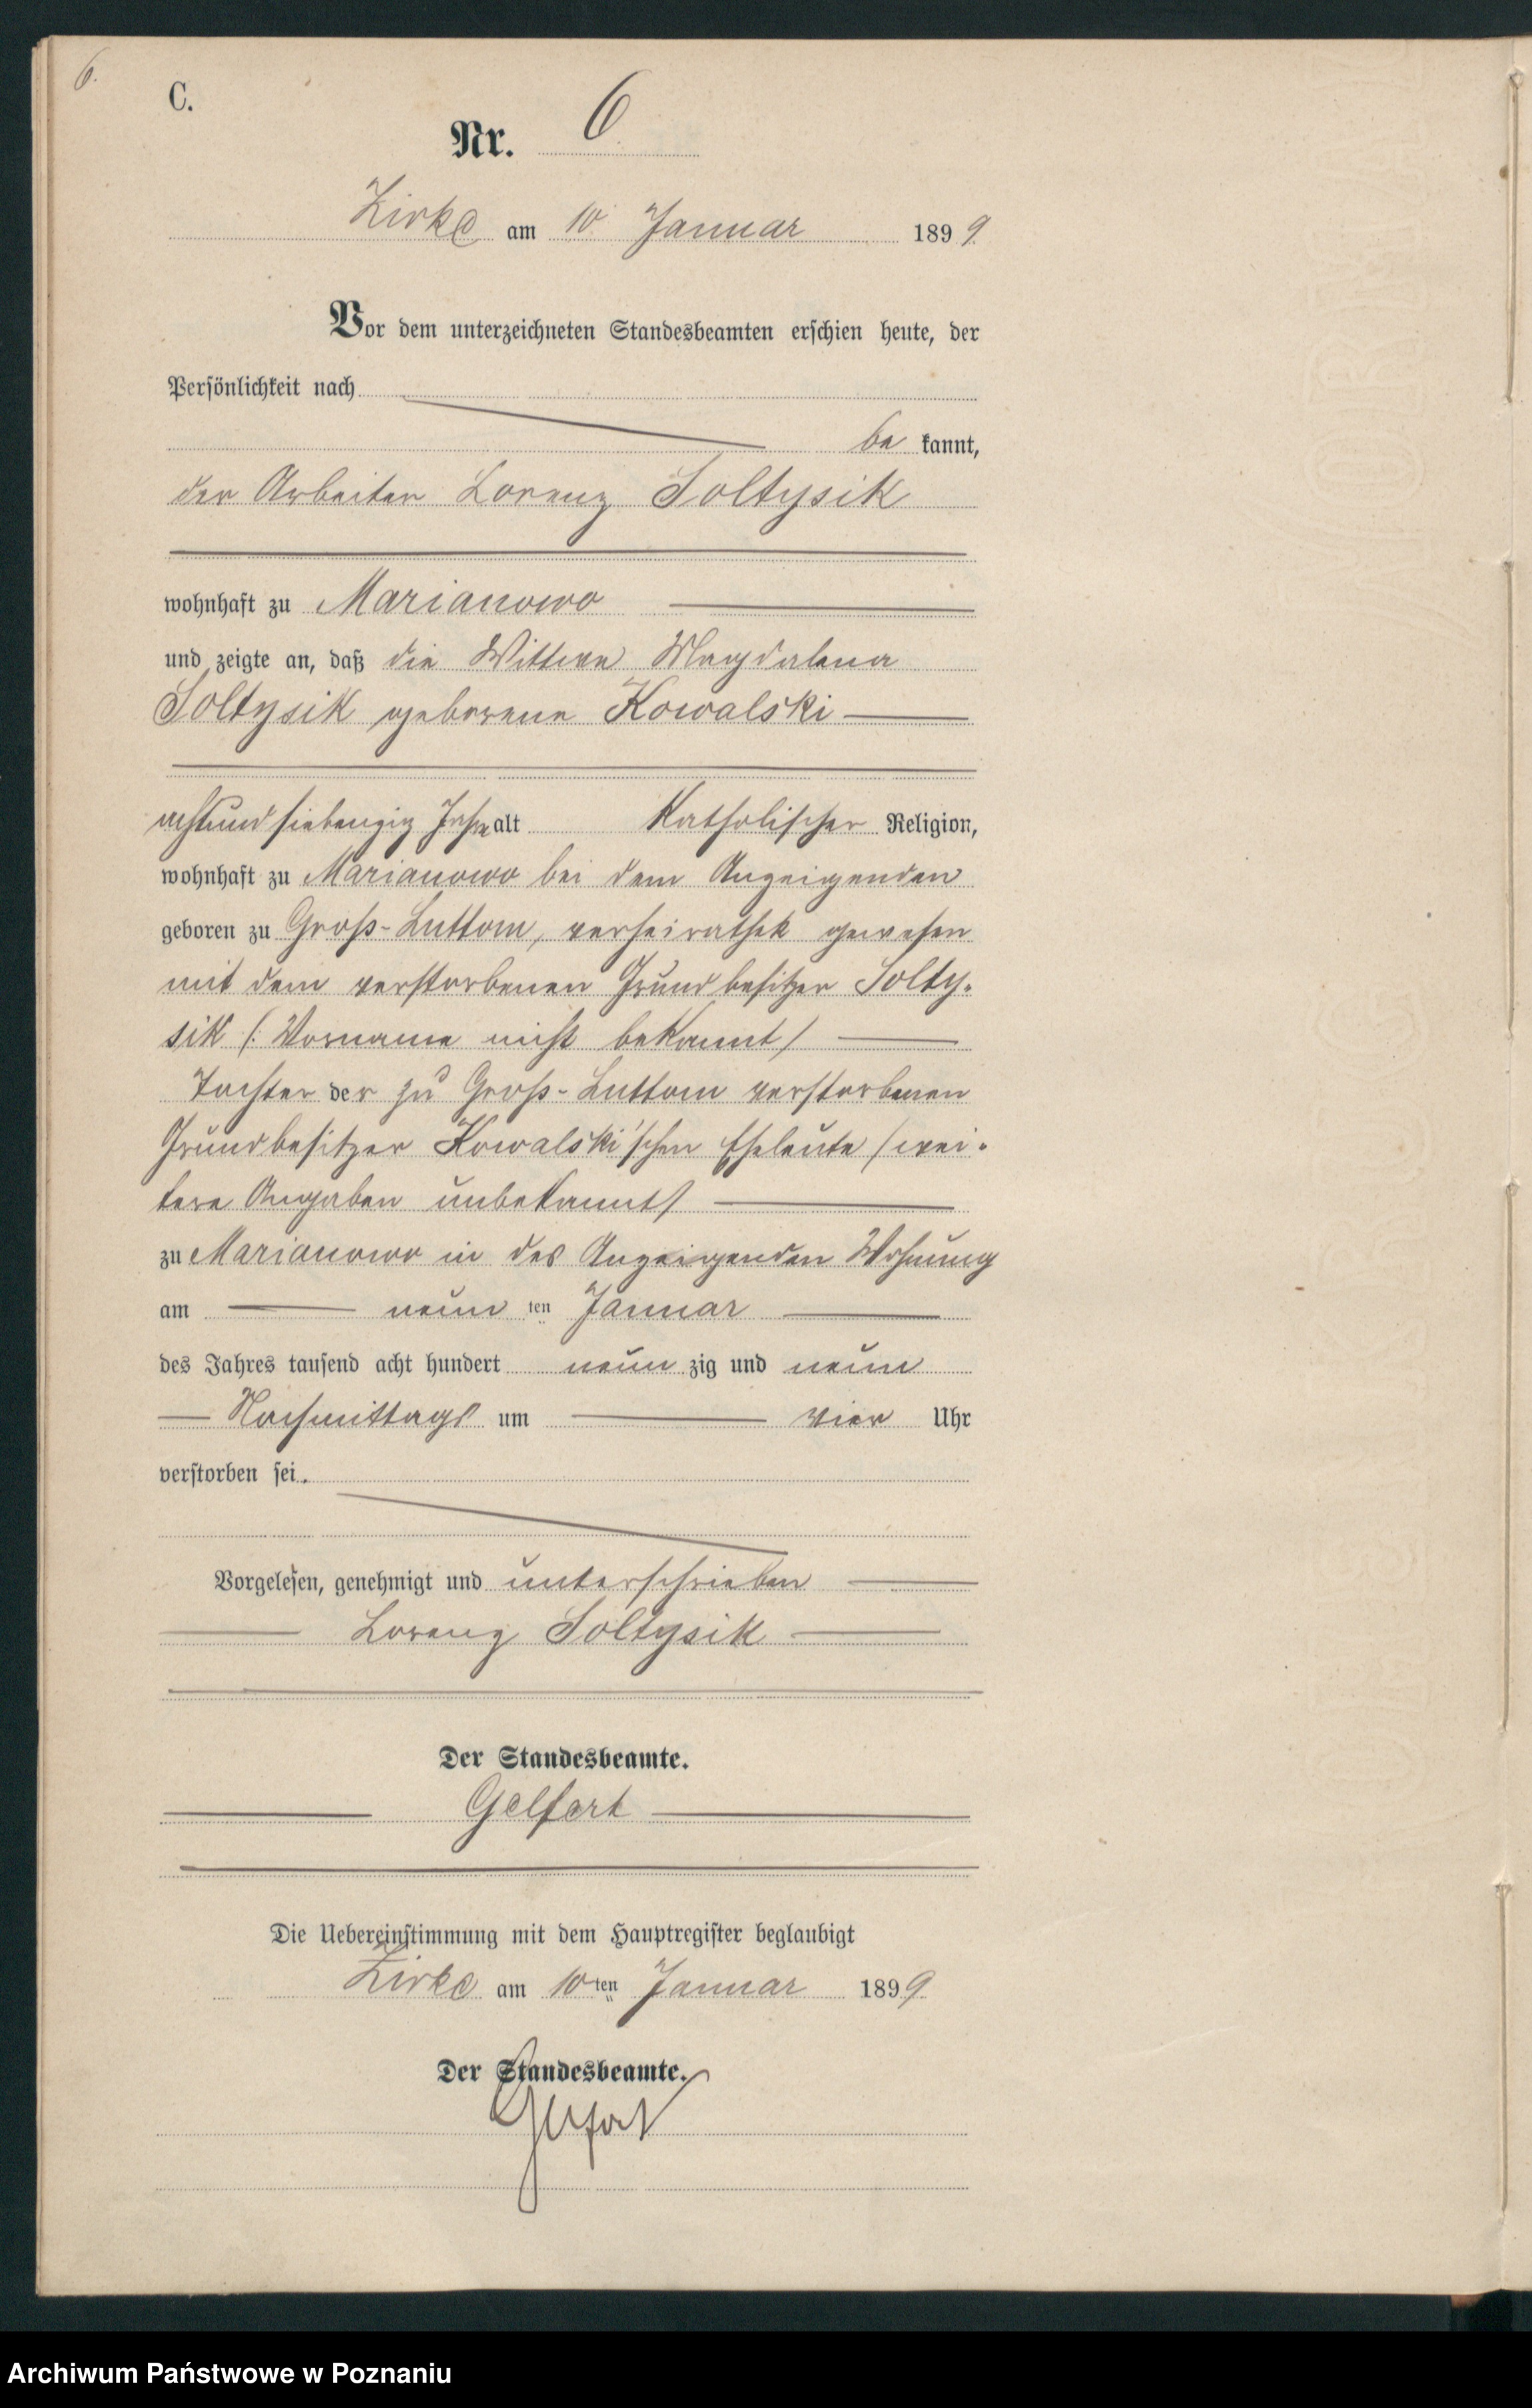 6.
C.
Nr. 6
Zirke am 10. Januar 1899.
Vor dem unterzeichneten Standesbeamten erschien heute, der
Persönlichkeit nach
be kannt,
der Arbeiter Lorenz Soltysik
wohnhaft zu Marianowo
und zeigte an, daß die Wittwe Magdalena
Soltysik geborene Kowalski
achtundsiebenzig Jahre alt Katholischer Religion,
wohnhaft zu Marianowo bei dem Anzeigenden
geboren zu Groß-Luttom, verheirathet gewesen
mit dem verstorbenen Grundbesitzer Solty-
sik (: Vorname nicht bekannt)
Tochter der zu Groß-Luttom verstorbenen
Grundbesitzer Kowalski'schen Eheleute (wei-
tere Angaben unbekannt)
zu Marianowo in des Anzeigenden Wohnung
am neun ten Januar
des Jahres tausend acht hundert neun zig und neun
Nachmittags um vier Uhr
verstorben sei.
Vorgelesen, genehmigt und unterschrieben
Lorenz Soltysik
Der Standesbeamte.
Gelfert
Die Uebereinstimmung mit dem Hauptregister beglaubigt
Zirke am 10ten Januar 1899.
Der Standesbeamte.
Gelfert
Archiwum Państwowe w Poznaniu